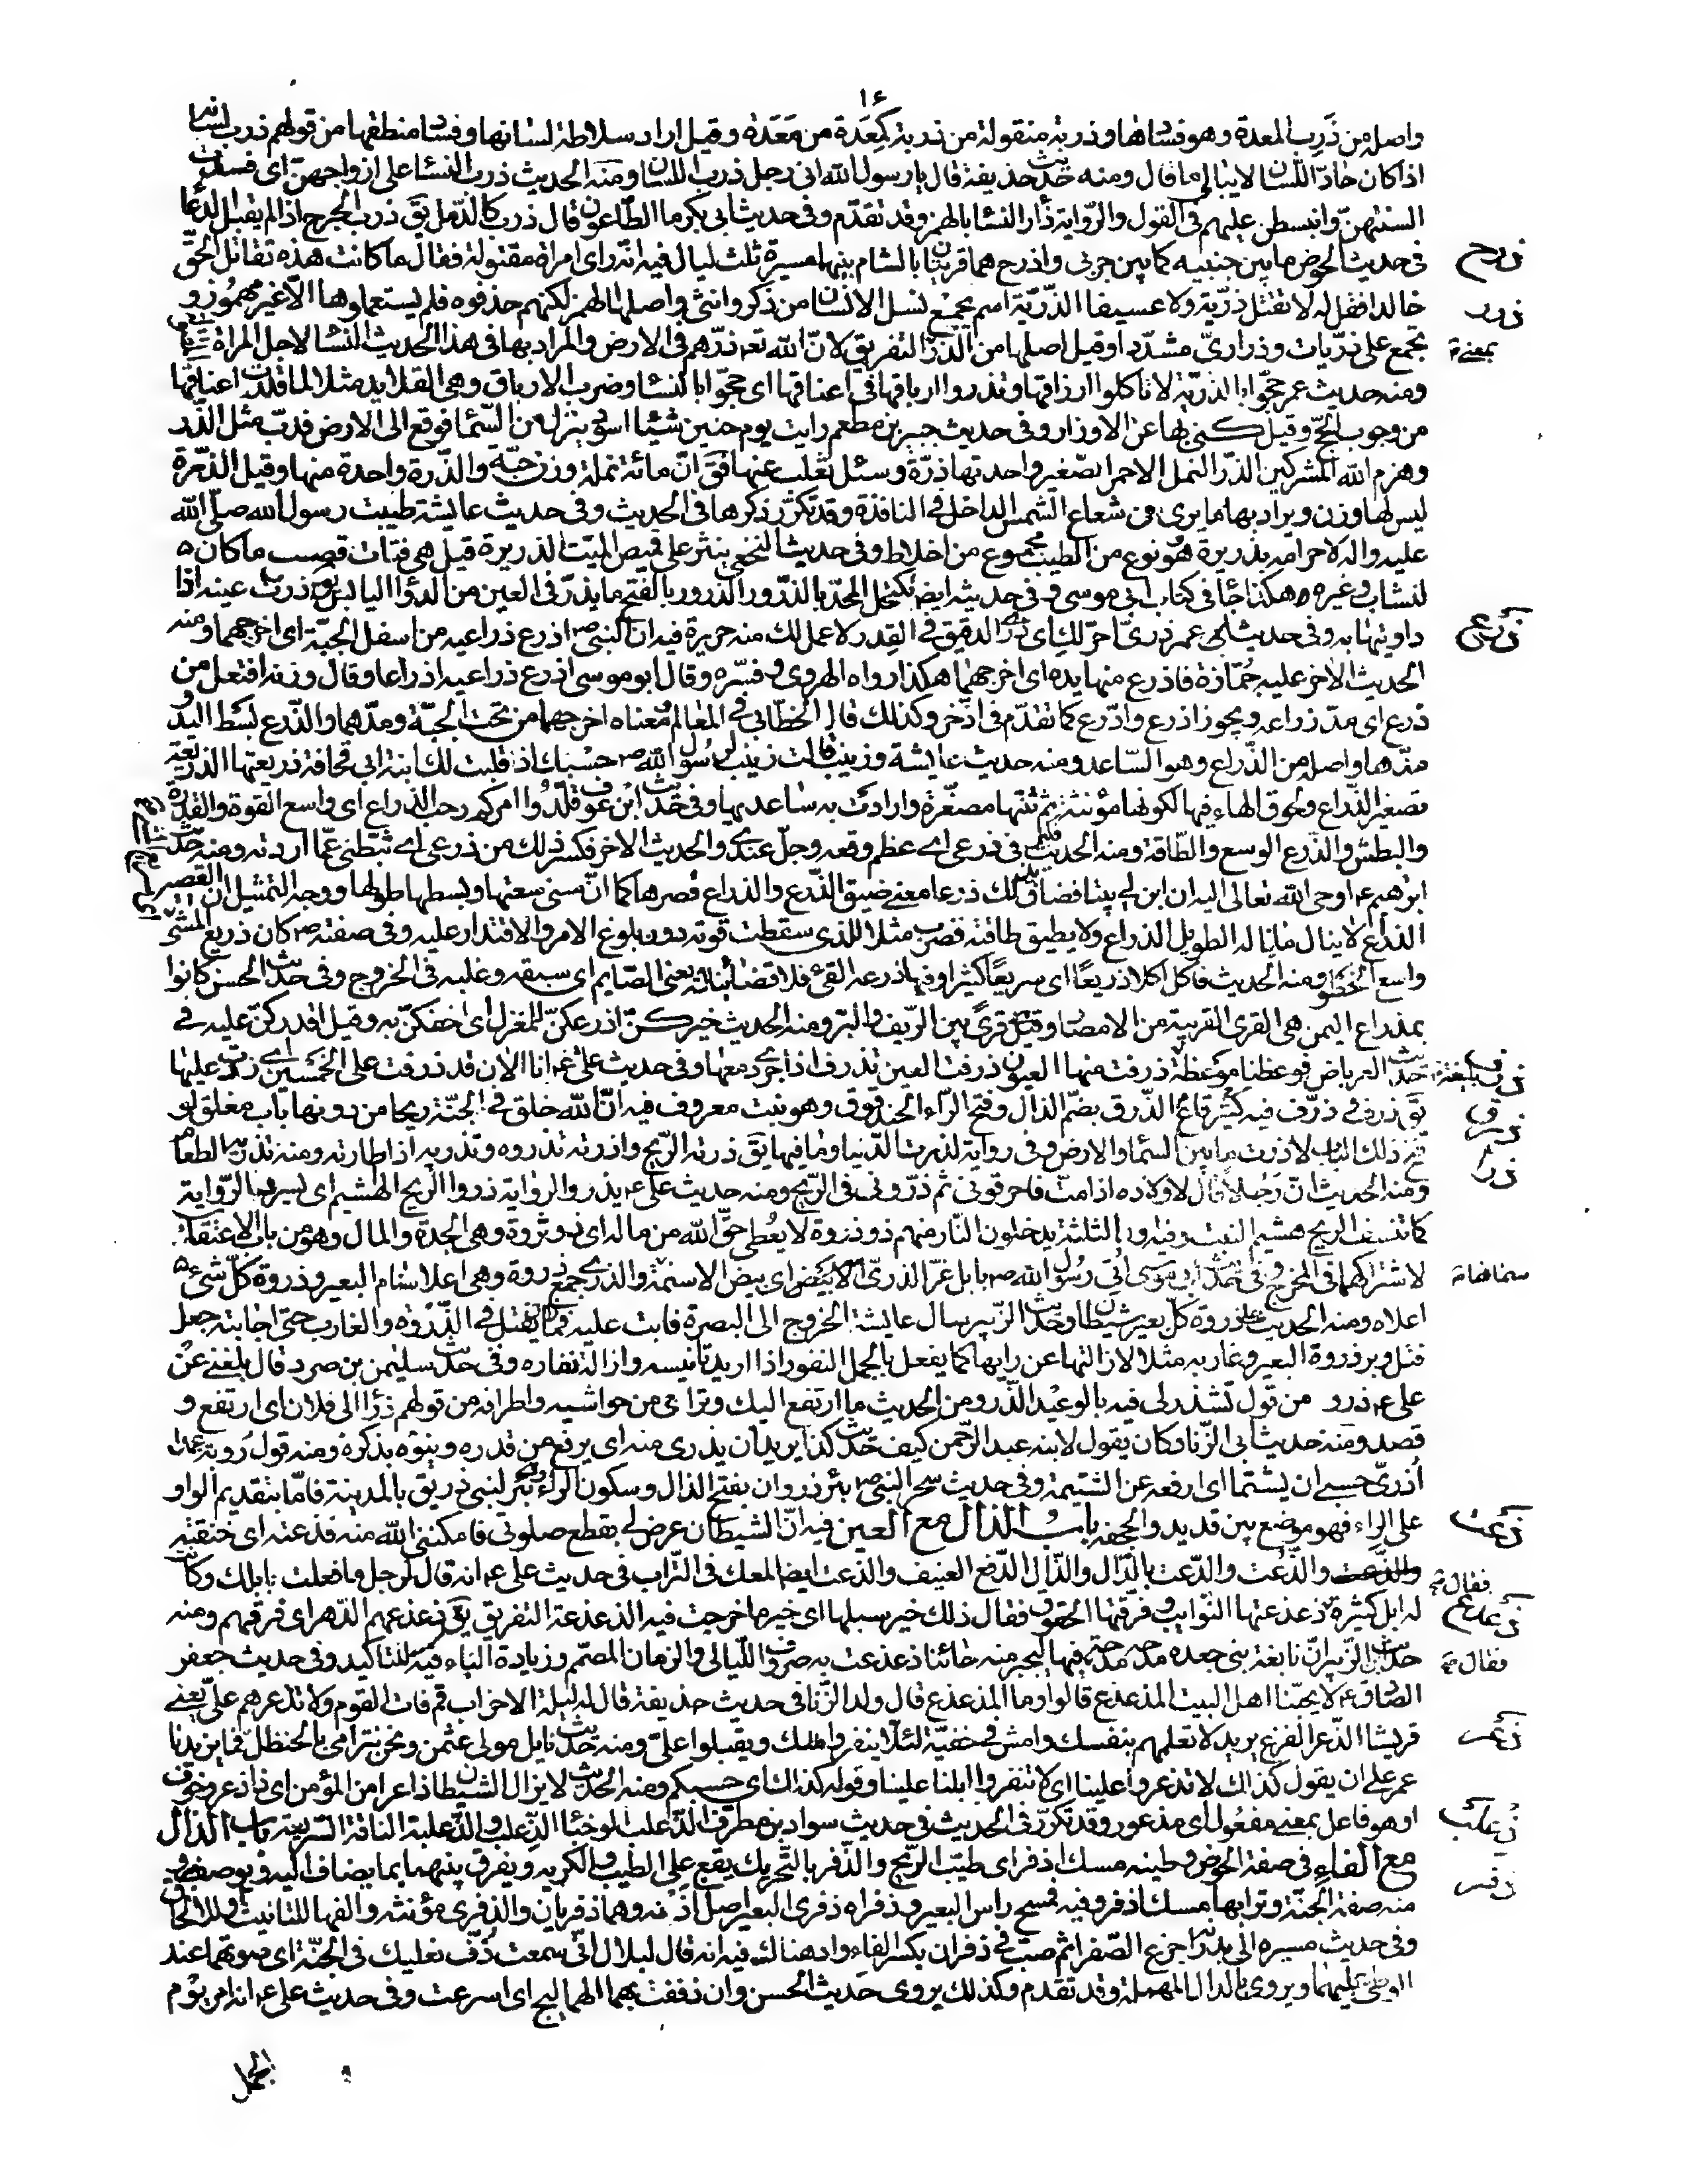 ١٤
واصله من ذرب المعدة وهو فسادها وذربة منقولة من ذربة كمعدة من معدة وقيل اراد سلاطة لسانها وفساد منطقها من قولهم ذرب لسانه
اذا كان حادّ اللّسان لا يبالي ما قال ومنه حديث حذيفة قال يا رسول الله انى رجل ذرب اللسان ومنه الحديث ذرب النساء على ازواجهنّ اى فسدت
السنتهنّ وانبسطن عليهم فى القول والرّواية ذأر النساء بالهمز وقد تقدّم وفى حديث ابى بكر ما الطّاعون قال ذرب كالدّمل يقَ ذرب الجرح اذا لم يقبل الدواء
ذرح
فى حديث الحوض ما بين جنبيه كما بين جربى واذرح هما قريتان بالشام بينهما مسيرة ثلث ليال فيه انّه راى امراة مقتولة فقال ما كانت هذه تقاتل الحق
ذرر
خالدا فقل له لا تقتل ذرّية ولا عسيفا الذّرّيّة اسم يجمع نسل الانسان من ذكر وانثى واصلها الهمز لكنهم حذفوه فلم يستعملوها الّا غير مهموزة و
تجمع على ذرّيات وذرارىّ مشدّدا وقيل اصلها من الذّرّ التفريق لانّ الله تع ذرّهم فى الارض والمراد بها فى هذا الحديث النّساء لاجل المراة
بمعنى
ومنه حديث عمر حجّوا بالذرّيّة لا تاكلوا ارزاقها وتذروا ارباقها فى اعناقها اى حجّوا بالنساء وضرب الارباق وهى القلايد مثلا لما قلّدت اعناقها
من وجوب الحجّ وقيل كنى بها عن الاوزار وفى حديث جبير بن مطعم رايت يوم حنين شيئا اسود ينزل من السّماء فوقع الى الارض فدبّ مثل الذّر
وهزم الله المشركين الذّر النمل الاحمر الصّغير واحدتها ذرّة وسئل ثعلب عنها فقَ انّ مائة نملة وزن حبّة والذّرة واحدة منها وقيل الذّرة
ليس لها وزن ويراد بها ما يرى فى شعاع الشمس الداخل فى النافذة وقد تكرّر ذكرها فى الحديث وفى حديث عايشة طيبت رسول الله صلّى الله
عليه واله لاحرامه بذريرة هو نوع من الطيب مجموع من اخلاط وفى حديث النخعى ينثر على قميص الميّت الذريرة قيل هى فتات قصب ما كان
لنشاب وغيره هكذا جاء فى كتاب ابى موسى و فى حديثه ايضا تكتحل المحدّ بالذّرور الذرور بالفتح ما يذرّ فى العين من الدواء اليابس يقَ ذررت عينه اذا
داويتها به وفى حديث عمر ذرىّ احرّ لك اى ذرّى الدقيق فى القدر لاعمل لك منه حريرة فيه انّ النبى ص اذرع ذراعيه من اسفل الجبّة اى اخرجهما ومنه
ذرع
الحديث الاخر عليه جمّازة فاذرع منها يده اى اخرجهما هكذا رواه الهروى وفسّره وقال ابو موسى اذرع ذراعيه اذراعا وقال وزنه افتعل من
ذرع اى مدّ ذراعه ويجوز اذرع وادّرع كما تقدّم فى اذّخر وكذلك قال الخطّابى فى المعالم معناه اخرجهما من تحت الجبّة ومدّهما والذّرع بسط اليد و
مدّها واصله من الذّراع وهو السّاعد ومنه حديث عايشة وزينب قالت زينب لرسول الله ص حسبك اذ قلبت لك ابنة ابى قحافة ذريعتيها الذريعة
تصغير الذّراع ولحوق الهاء فيها لكونها مؤنثة ثم ثنتها مصغّرة وارادت به ساعديها وفى حديث ابن عوف قلّدوا امركم رحب الذراع اى واسع القوة والقدرة
والبطش والذّرع الوسع والطّاقة ومنه الحديث فكبر فى ذرعى اى عظم وقعه وجلّ عندى والحديث الاخر فكسر ذلك من ذرعى اى ثبّطنى عمّا اردته ومنه حديث
ابرهيم ع اوحى الله تعالى اليه ان ابن لى بيتا فضاق بذلك ذرعا معنى ضيق الذّرع والذراع قصرها كما انّ معنى سعتها وبسطها طولها ووجه التمثيل ان القصير
الذراع لا ينال ما يناله الطويل الذراع ولا يطيق طاقته فضرب مثلا للذى سقطت قوته دون بلوغ الامر والاقتدار عليه وفى صفته ص كان ذريع المشى
واسع الخطو ومنه الحديث فاكل اكلا ذريعًا اى سريعًا كثيرا وفيه من ذرعه القىء فلا قضاء عليه يعنى الصّايم اى سبقه وغلبه فى الخروج وفى حديث الحسن كانوا
بمذراع اليمن هى القرى القريبة من الامصار وقيل قرىً بين الرّيف والبرّ ومنه الحديث خيركنّ اذرعكنّ للمغزل اى اخفكنّ به وقيل اقدركنّ عليه فى
ذرف
حديث العرباض فوعظنا موعظة بليغة ذرفت منها العيون ذرفت العين تذرف اذا جرى دمعها وفى حديث على ع انا الان قد ذرفت على الخمسين اى زدت عليها
ذرق
يقَ ذرف وذرّف فيه كثير قاع الذّرق بضمّ الذال وفتح الرّاء الحندقوق وهو نبت معروف فيه انّ الله خلق فى الجنّة ريحا من دونها باب مغلق لو
ذرا
فتح ذلك الباب لاذرت ما بين السماء والارض وفى رواية لذرت الدّنيا وما فيها يقَ ذرته الرّيح واذرته تذروه وتذريه اذا اطارته ومنه تذرية الطعام
ومنه الحديث انّ رجلا قال لاولاده اذا متّ فاحرقونى ثم ذرّونى فى الرّيح ومنه حديث على ع يذرو الرواية ذرو الريح الهشيم اى يسرد الرّواية
كما تنسف الريح هشيم النبت وفيه اول الثلثة يدخلون النّار منهم ذو ذروة لا يعطى حقّ الله من ماله اى ذو ثروة وهى الجدة والمال وهو من باب الاعتقاب
لاشتراكهما فى المخرج وفى حديث ابى موسى اتى رسول الله ص بابل غرّ الذرىّ اى بيض الاسنمة والذرى جمع ذروة وهى اعلا سنام البعير وذروة كلّ شىء
سماتها
اعلاه ومنه الحديث على ذروة كلّ بعير شيطان وحديث الزّبير سال عايشة الخروج الى البصرة فابت عليه فما زال يفتل فى الذّروة والغارب حتى اجابته جعل
فتل وبر ذروة البعير وغاربه مثلا لازالتها عن رايها كما يفعل بالجمل النفور اذا اريد تانيسه وازالة نفاره وفى حديث سليمن بن صرد قال بلغنى عن
على ع ذرو من قول تشذّر لى فيه بالوعيد الذّرو من الحديث ما ارتفع اليك وترامى من حواشيه واطرافه من قولهم ذرا الى فلان اى ارتفع و
قصد ومنه حديث ابى الزّناد كان يقول لابنه عبد الرّحمن كيف حديث كذا يريد ان يذرى منه اى يرفع من قدره وينوّه بذكره ومنه قول رؤبة عمدا
أُذرىّ حسبى ان يشتما اى ارفعه عن الشتيمة وفى حديث سحر النبى ص بئر ذروان بفتح الذال وسكون الراء وهى بئر لبنى زريق بالمدينة فامّا بتقديم الواو
ذعت
على الراء فهو موضع بين قديد والجحفه باب الذال مع العين فيه انّ الشيطان عرض لى يقطع صلوتى فامكننى الله منه فذعته اى خنقته
والذّعت والدّعت بالدّال والذّال الدّفع العنيف والذعت ايضا المعك فى التّراب فى حديث على ع انه قال لرجل ما فعلت بابلك وكانت
ذعذع
له ابل كثيرة فقال ذعذعتها النوايب وفرقتها الحقوق فقال ذلك خير سبلها اى خير ما خرجت فيه الذعذعة التفريق يقَ ذعذعهم الدّهر اى فرقهم ومنه
حديث ابن الزّبير انّ نابغة بنى جعده مدحه مدحة فقال فيها لتجبر منه جانبا ذعذعت به صروف اللّيالى والزمان المصمّم وزيادة الباء فيه للتاكيد وفى حديث جعفر
الصّادق ع لا يحبّنا اهل البيت المذعذع قالوا وما المذعذع قال ولد الزّنا فى حديث حذيفة قال له ليلة الاحزاب قم فات القوم ولا تذعرهم علىّ يعنى
ذعر
قريشا الذّعر الفزع يريد لا تعلمهم بنفسك وامش فى خفيّة لئلّا ينفروا منك ويقبلوا علىّ ومنه حديث نايل مولى عثمن ونحن نترامى بالحنظل فما يزيدنا
عمر على ان يقول كذاك لا تذعروا علينا اى لا تنفروا ابلنا علينا وقوله كذاك اى حسبكم ومنه الحديث لا يزال الشيطان ذاعرا من المؤمن اى ذا ذعر وخوف
ذعلب
او هو فاعل بمعنى مفعول اى مذعور وقد تكرّر فى الحديث فى حديث سواد بن مطرّف الذّعلب الوجناء الذّعلب والذّعلبة الناقة السّريعة باب الذال
ذفر
مع الفاء فى صفة الحوض وطينه مسك اذفر اى طيّب الرّيح والذّفر بالتّحريك يقع على الطيب والكريه ويفرق بينهما بما يضاف اليه ويوصف به و
منه صفة الجنّة وترابها مسك اذفر وفيه فمسح راس البعير وذفراه ذفرى البعير اصل اذنه وهما ذفريان والذفرى مؤنثه والفها للتانيث او للالحاق
وفى حديث مسيره الى بدر جزع الصّفراء ثم صبّ فى ذفران بكسر الفاء واد هناك فيه انه قال لبلال انّى سمعت ذفّ نعليك فى الجنّة اى صوتهما عند
الوطى عليهما ويروى بالدال المهملة وقد تقدم وكذلك يروى حديث الحسن وان ذففت بهما الهماليج اى اسرعت وفى حديث على ع انه امر يوم
الجمل